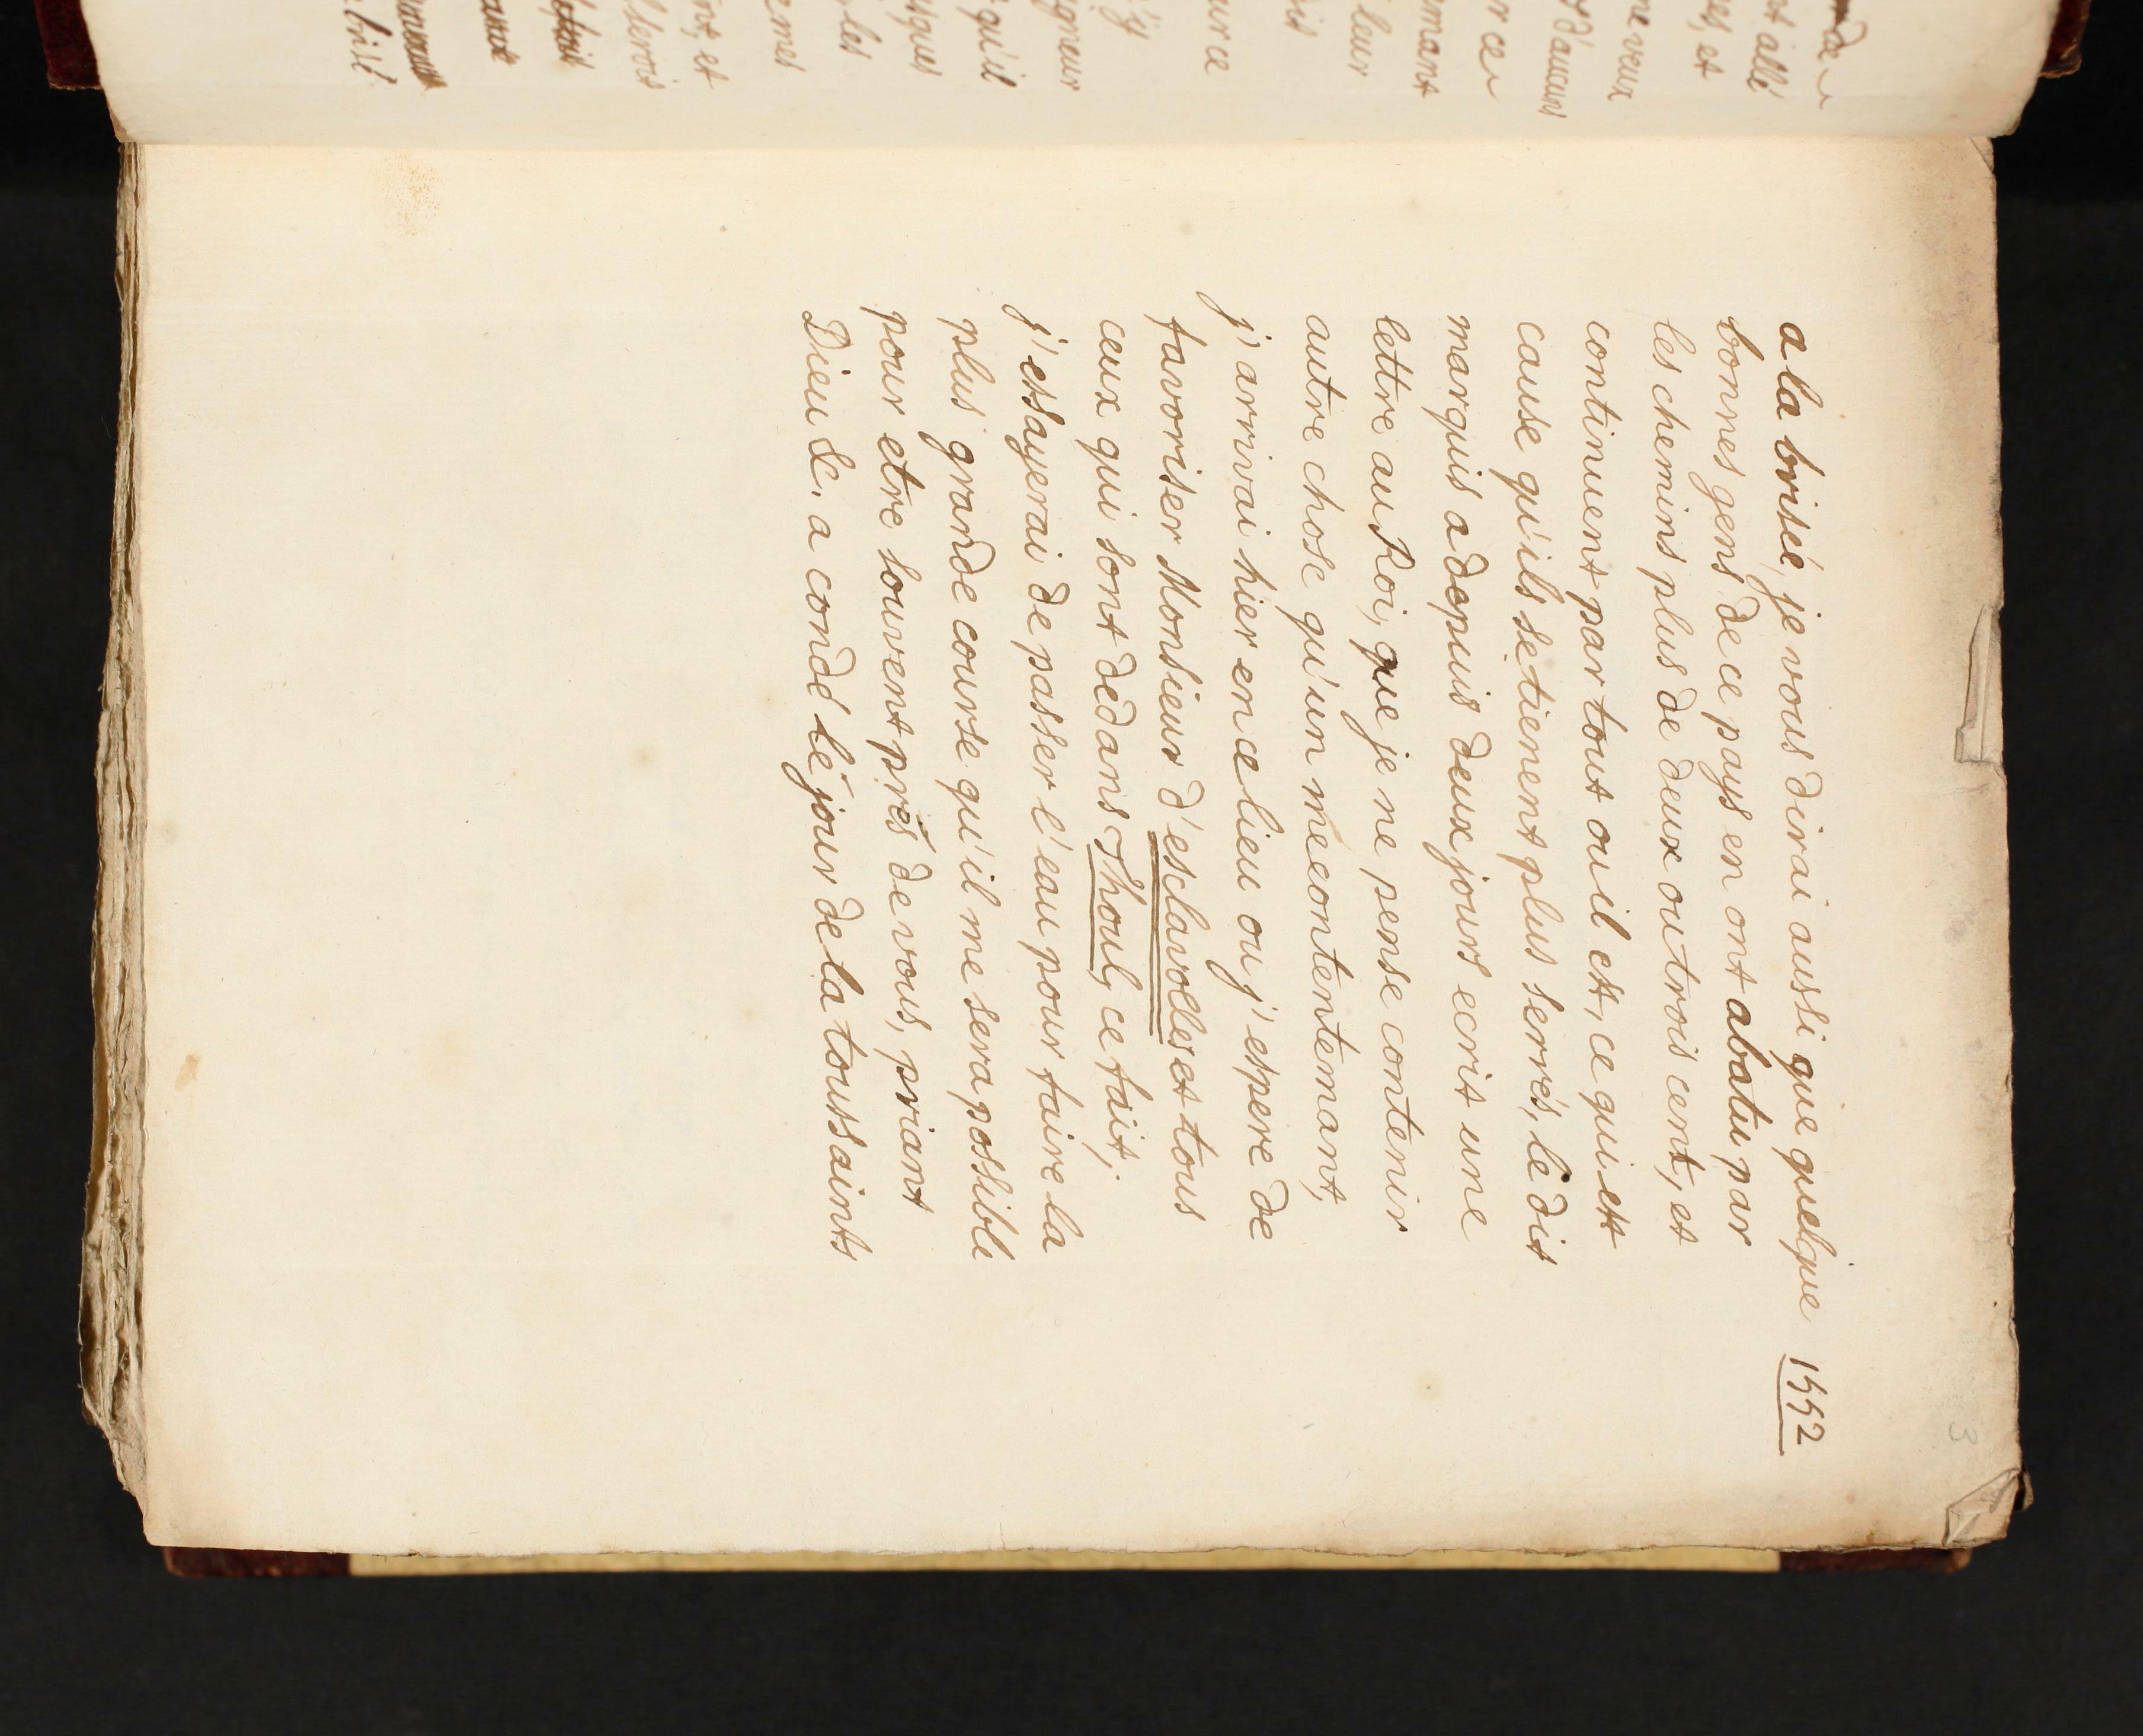 1552
a la brisée, je vous dirai aussi que quelque
bonnes gens de ce pays en ont abatu par
les chemins plus de deux ou trois cent, et
continuent par tout ou il est, ce qui est
cause qu'ils se tienent plus serrés, le dit
marquis a depuis deux jours ecrit une
lettre au Roi, que je ne pense contenir
autre chose qu'un mécontentemant,
j'arrivai hier en ce lieu ou j'espere de
favoriser Monsieur d'esclavolles et tous
ceux qui sont dedans Thoul, ce fait,
j'essayerai de passer l'eau pour faire la
plus grande course qu'il me sera possible
pour etre souvent prés de vous, priant
Dieu &. a condé le jour de la toussaints
3